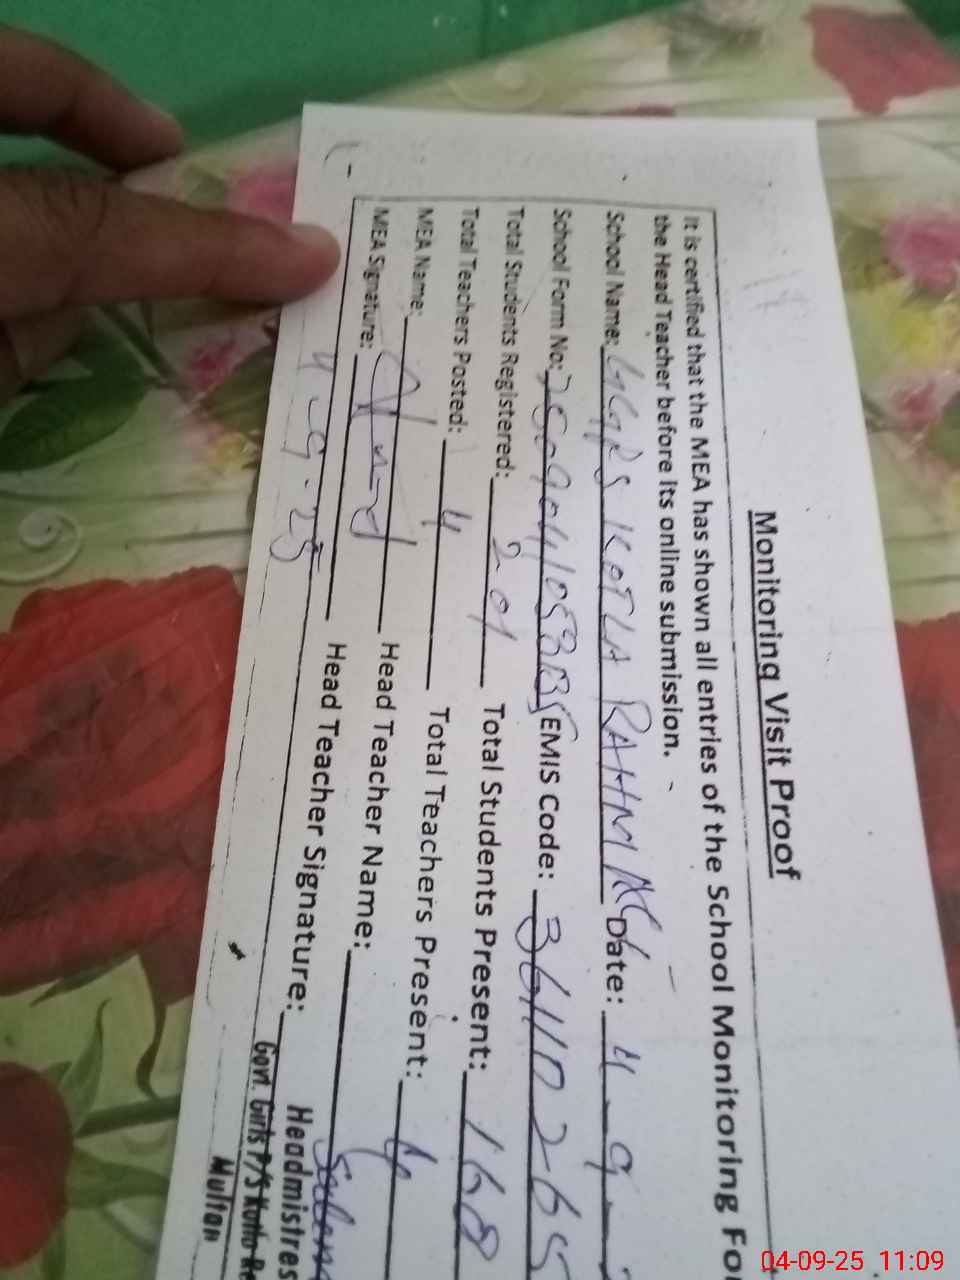 Monitoring Visit Proof
It is certified that the MEA has shown all entries of the School Monitoring For
the Head Teacher before its online submission.
School Name: GGPS KOTLA RAHM Date: 4-9-
School Form No: EMIS Code: 36110265
Total Students Registered: 201 Total Students Present: 168
Total Teachers Posted: 4 Total Teachers Present: 4
MEA Name: Head Teacher Name:
MEA Signature: Head Teacher Signature:
4-9-25
Headmistres
Govt. Girls P/S Kotla Re
Multan
04-09-25 11:09